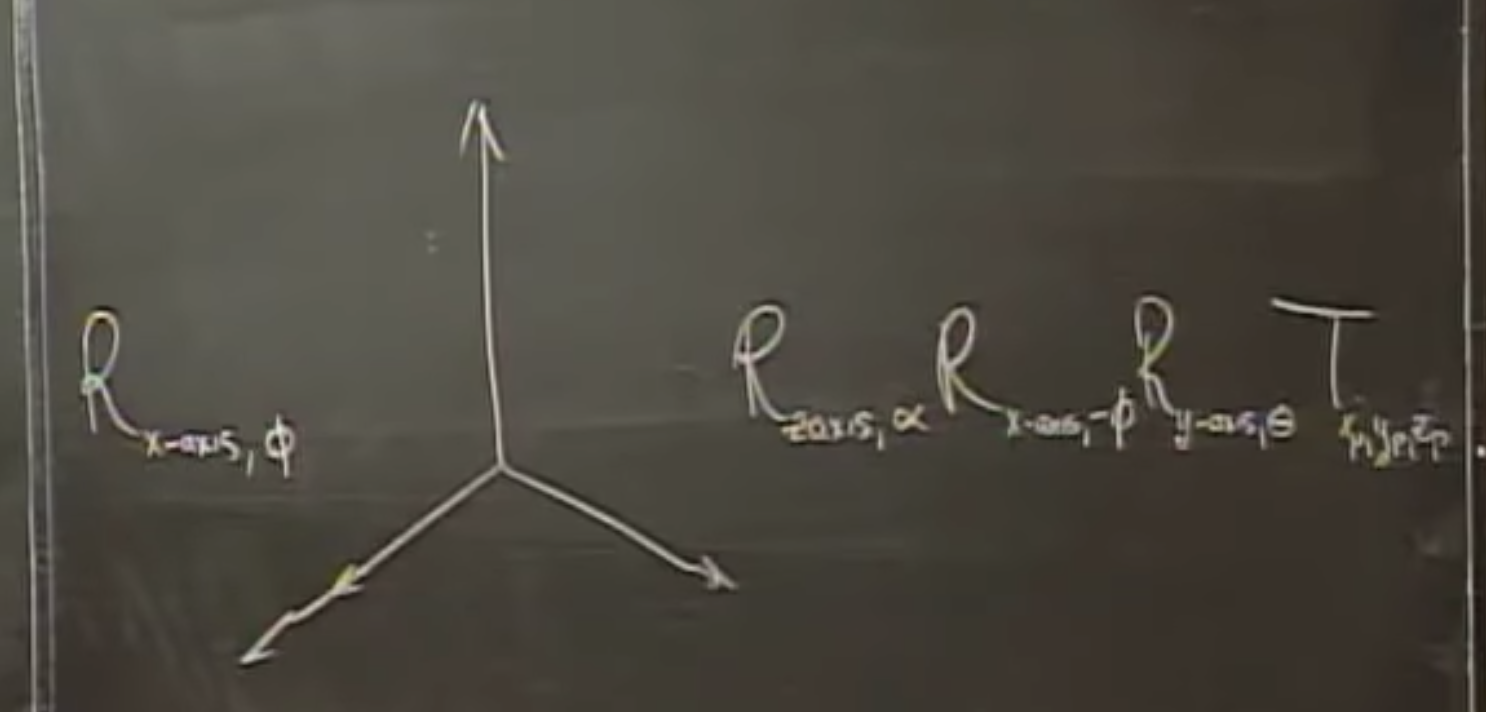 R x-axis, φ
R zaxis, α R x-axis, -φ R y-axis, θ T xₚ, yₚ, zₚ